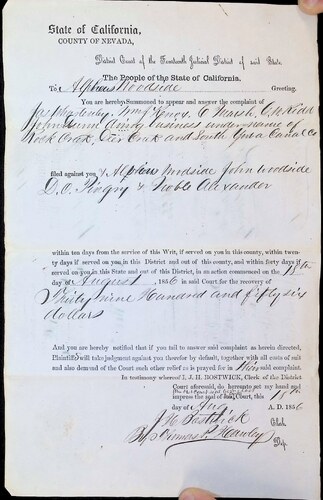 State of California,
COUNTY OF NEVADA,
District Court of the Fourteenth Judicial District of said State.
The People of the State of California.
To Alpheus Woodside Greeting.
You are hereby Summoned to appear and answer the complaint of
C Marsh, C W Kidd
John Dunn doing business under name of
Rock Creek, Deer Creek and South Yuba Canal Co
filed against you & Alpheus Woodside John Woodside
D. O. Pingry & Noble Alexander
within ten days from the service of this Writ, if served on you in this county, within twen-
ty days if served on you in this District and out of this county, and within forty days if
served on you in this State and out of this District, in an action commenced on the 18th
day of August 1856 in said Court for the recovery of
Thirty nine Hundred and fifty six
dollars
And you are hereby notified that if you fail to answer said complaint as herein directed,
Plaintiffs will take judgment against you therefor by default, together with all costs of suit
and also demand of the Court such other relief as is prayed for in this said complaint.
In testimony whereof I, J. H. BOSTWICK, Clerk of the District
Court aforesaid, do hereunto set my hand and
impress the seal of said Court, this 18th
day of Aug A. D. 1856
J H Bostwick Clerk
Dep.